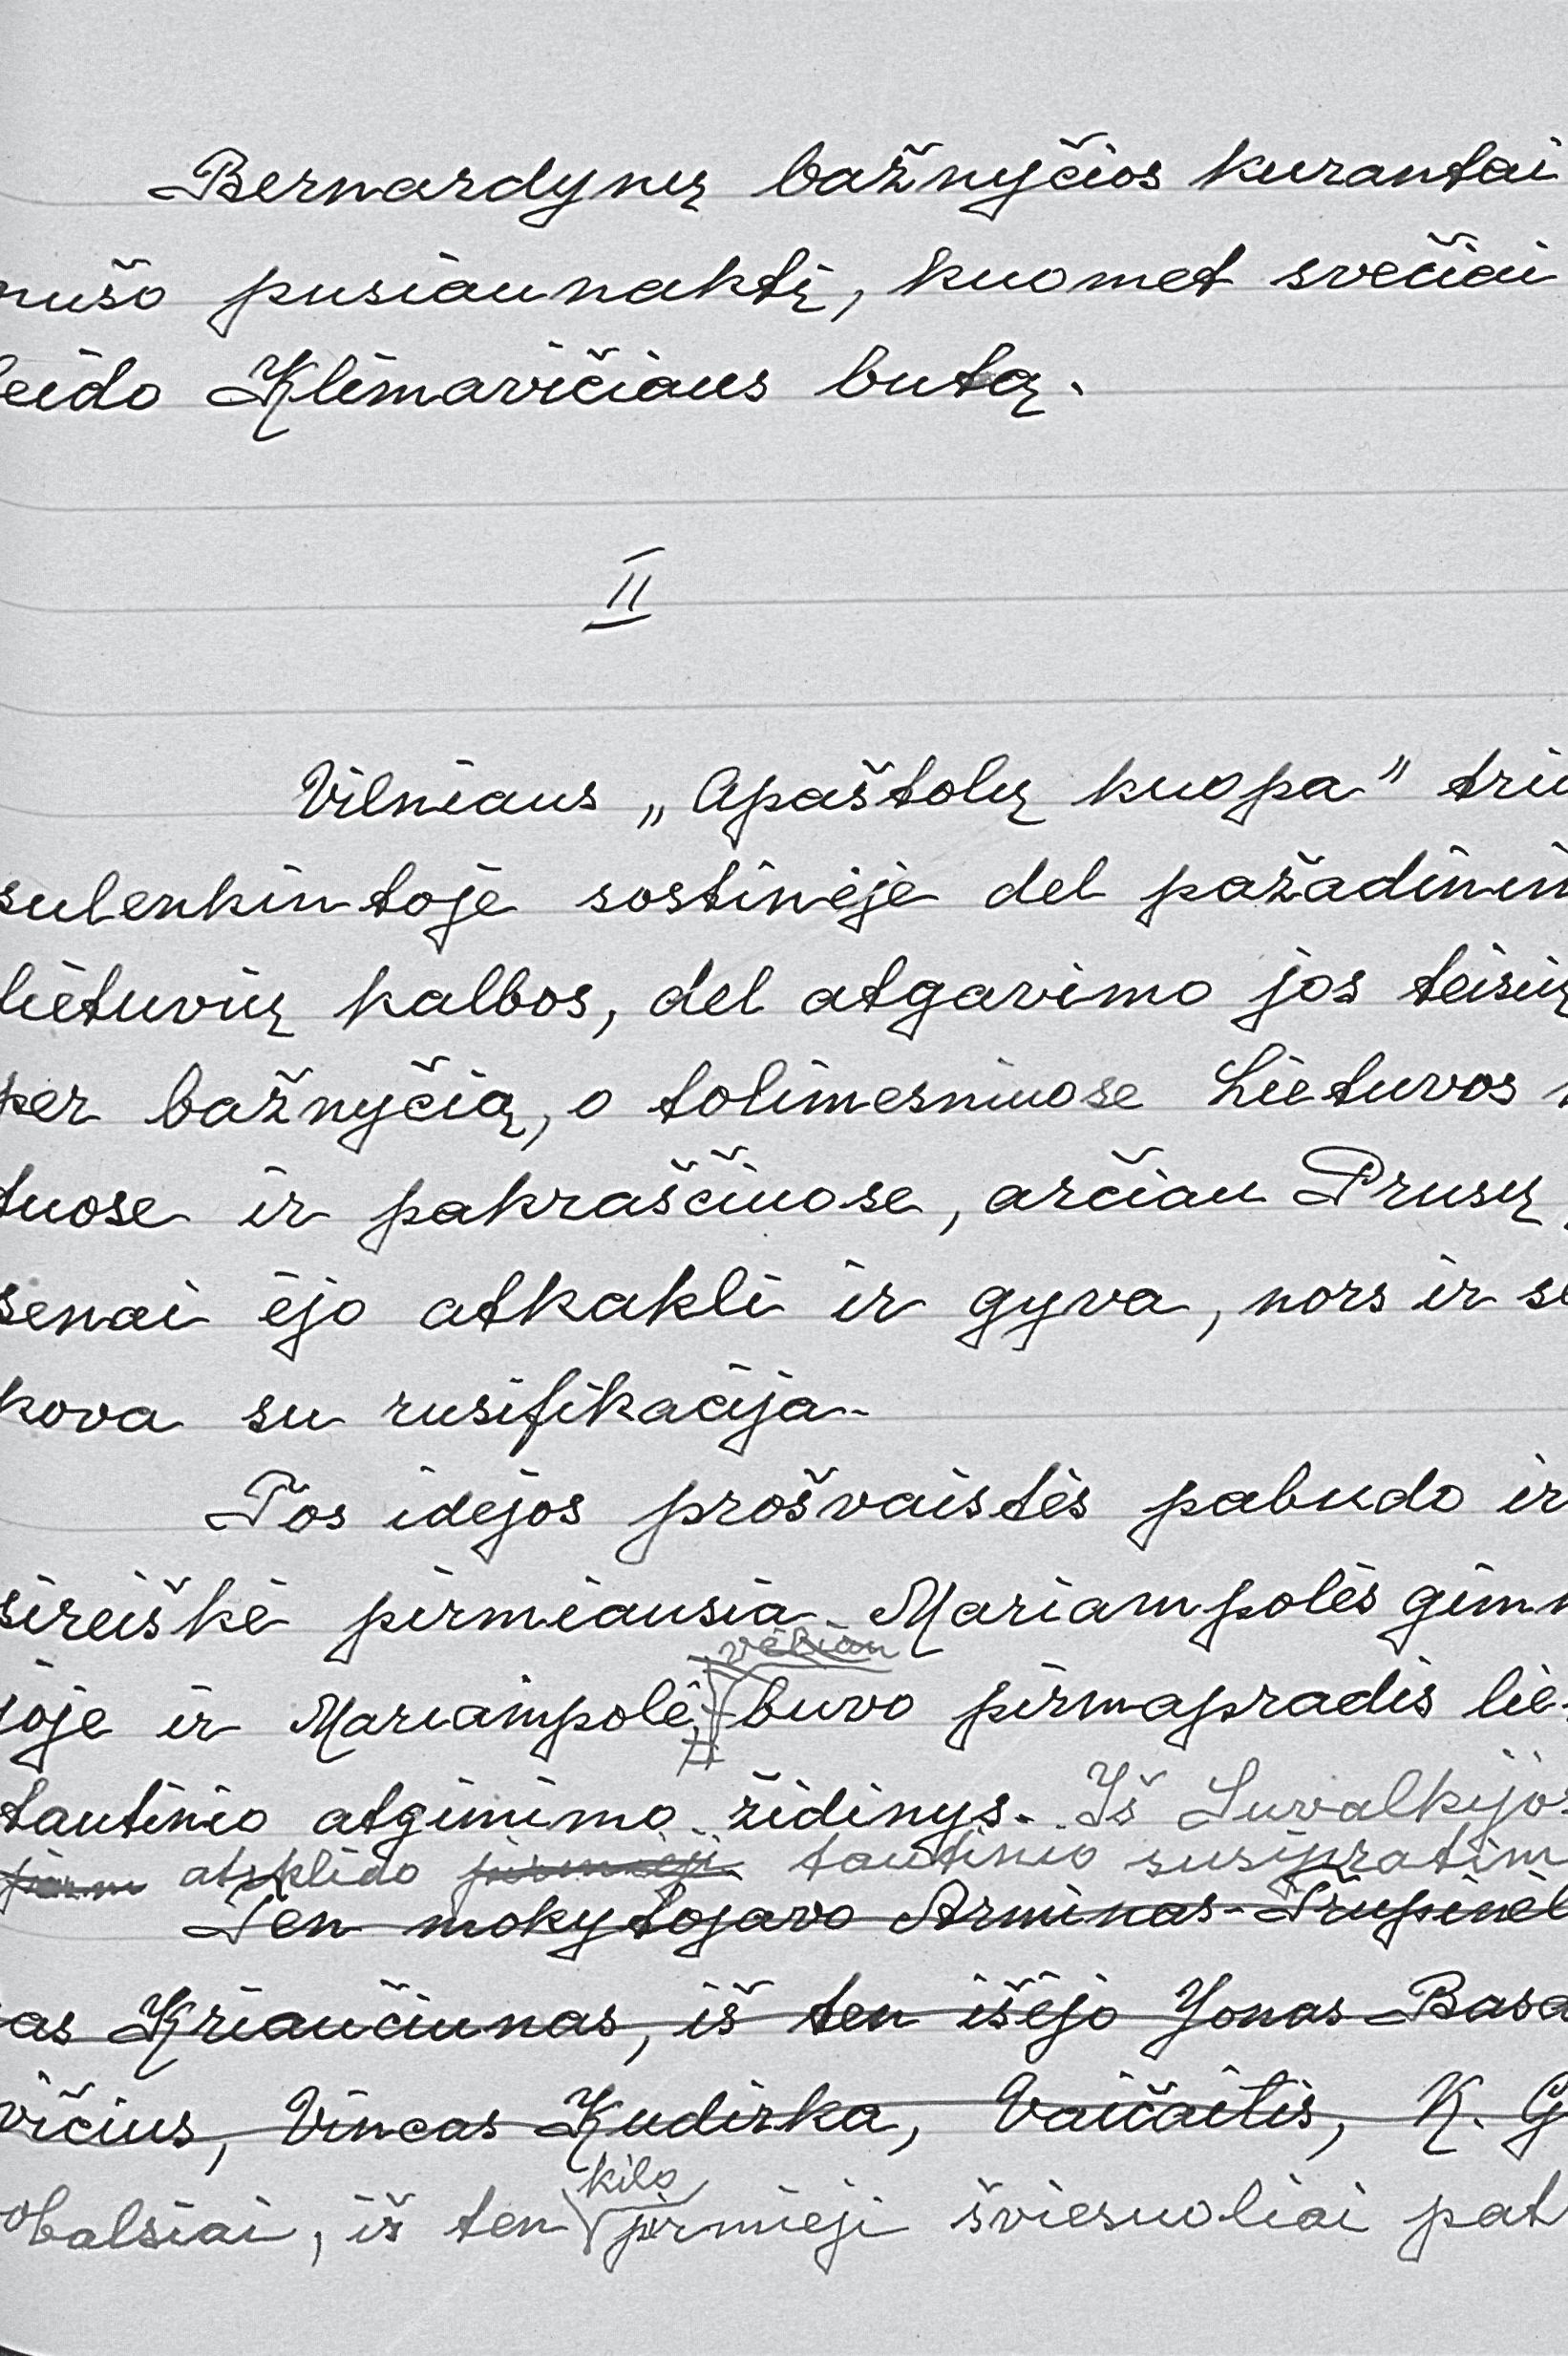 Bernardynų bažnyčios kurantai
mušo pusiaunaktį, kuomet svečiai
leido Klimavičiaus butą.
II
Vilniaus „Apaštolų kuopa" triu
sulenkintoje sostinėje del pažadinim
lietuvių kalbos, del atgavimo jos teisių
per bažnyčią, o tolimesniuose Lietuvos
tuose ir pakraščiuose, arčiau Prusų
senai ėjo atkakli ir gyva, nors ir sl
kova su rusifikacija.
Tos idėjos prošvaistės pabudo ir
sireiškė pirmiausia Mariampolės gimn
vėliau
joje ir Mariampolė buvo pirmapradis lie-
tautinio atgimimo židinys. Iš Suvalkijos
pirm atsklido pirmieji tautinio susipratim
Ten mokytojavo Arminas-Trupinėl
as Kriaučiunas, iš ten išėjo Jonas Basa
vičius, Vincas Kudirka, Vaičaitis, K. G
kilo
obalsiai, iš ten pirmieji šviesuoliai pat